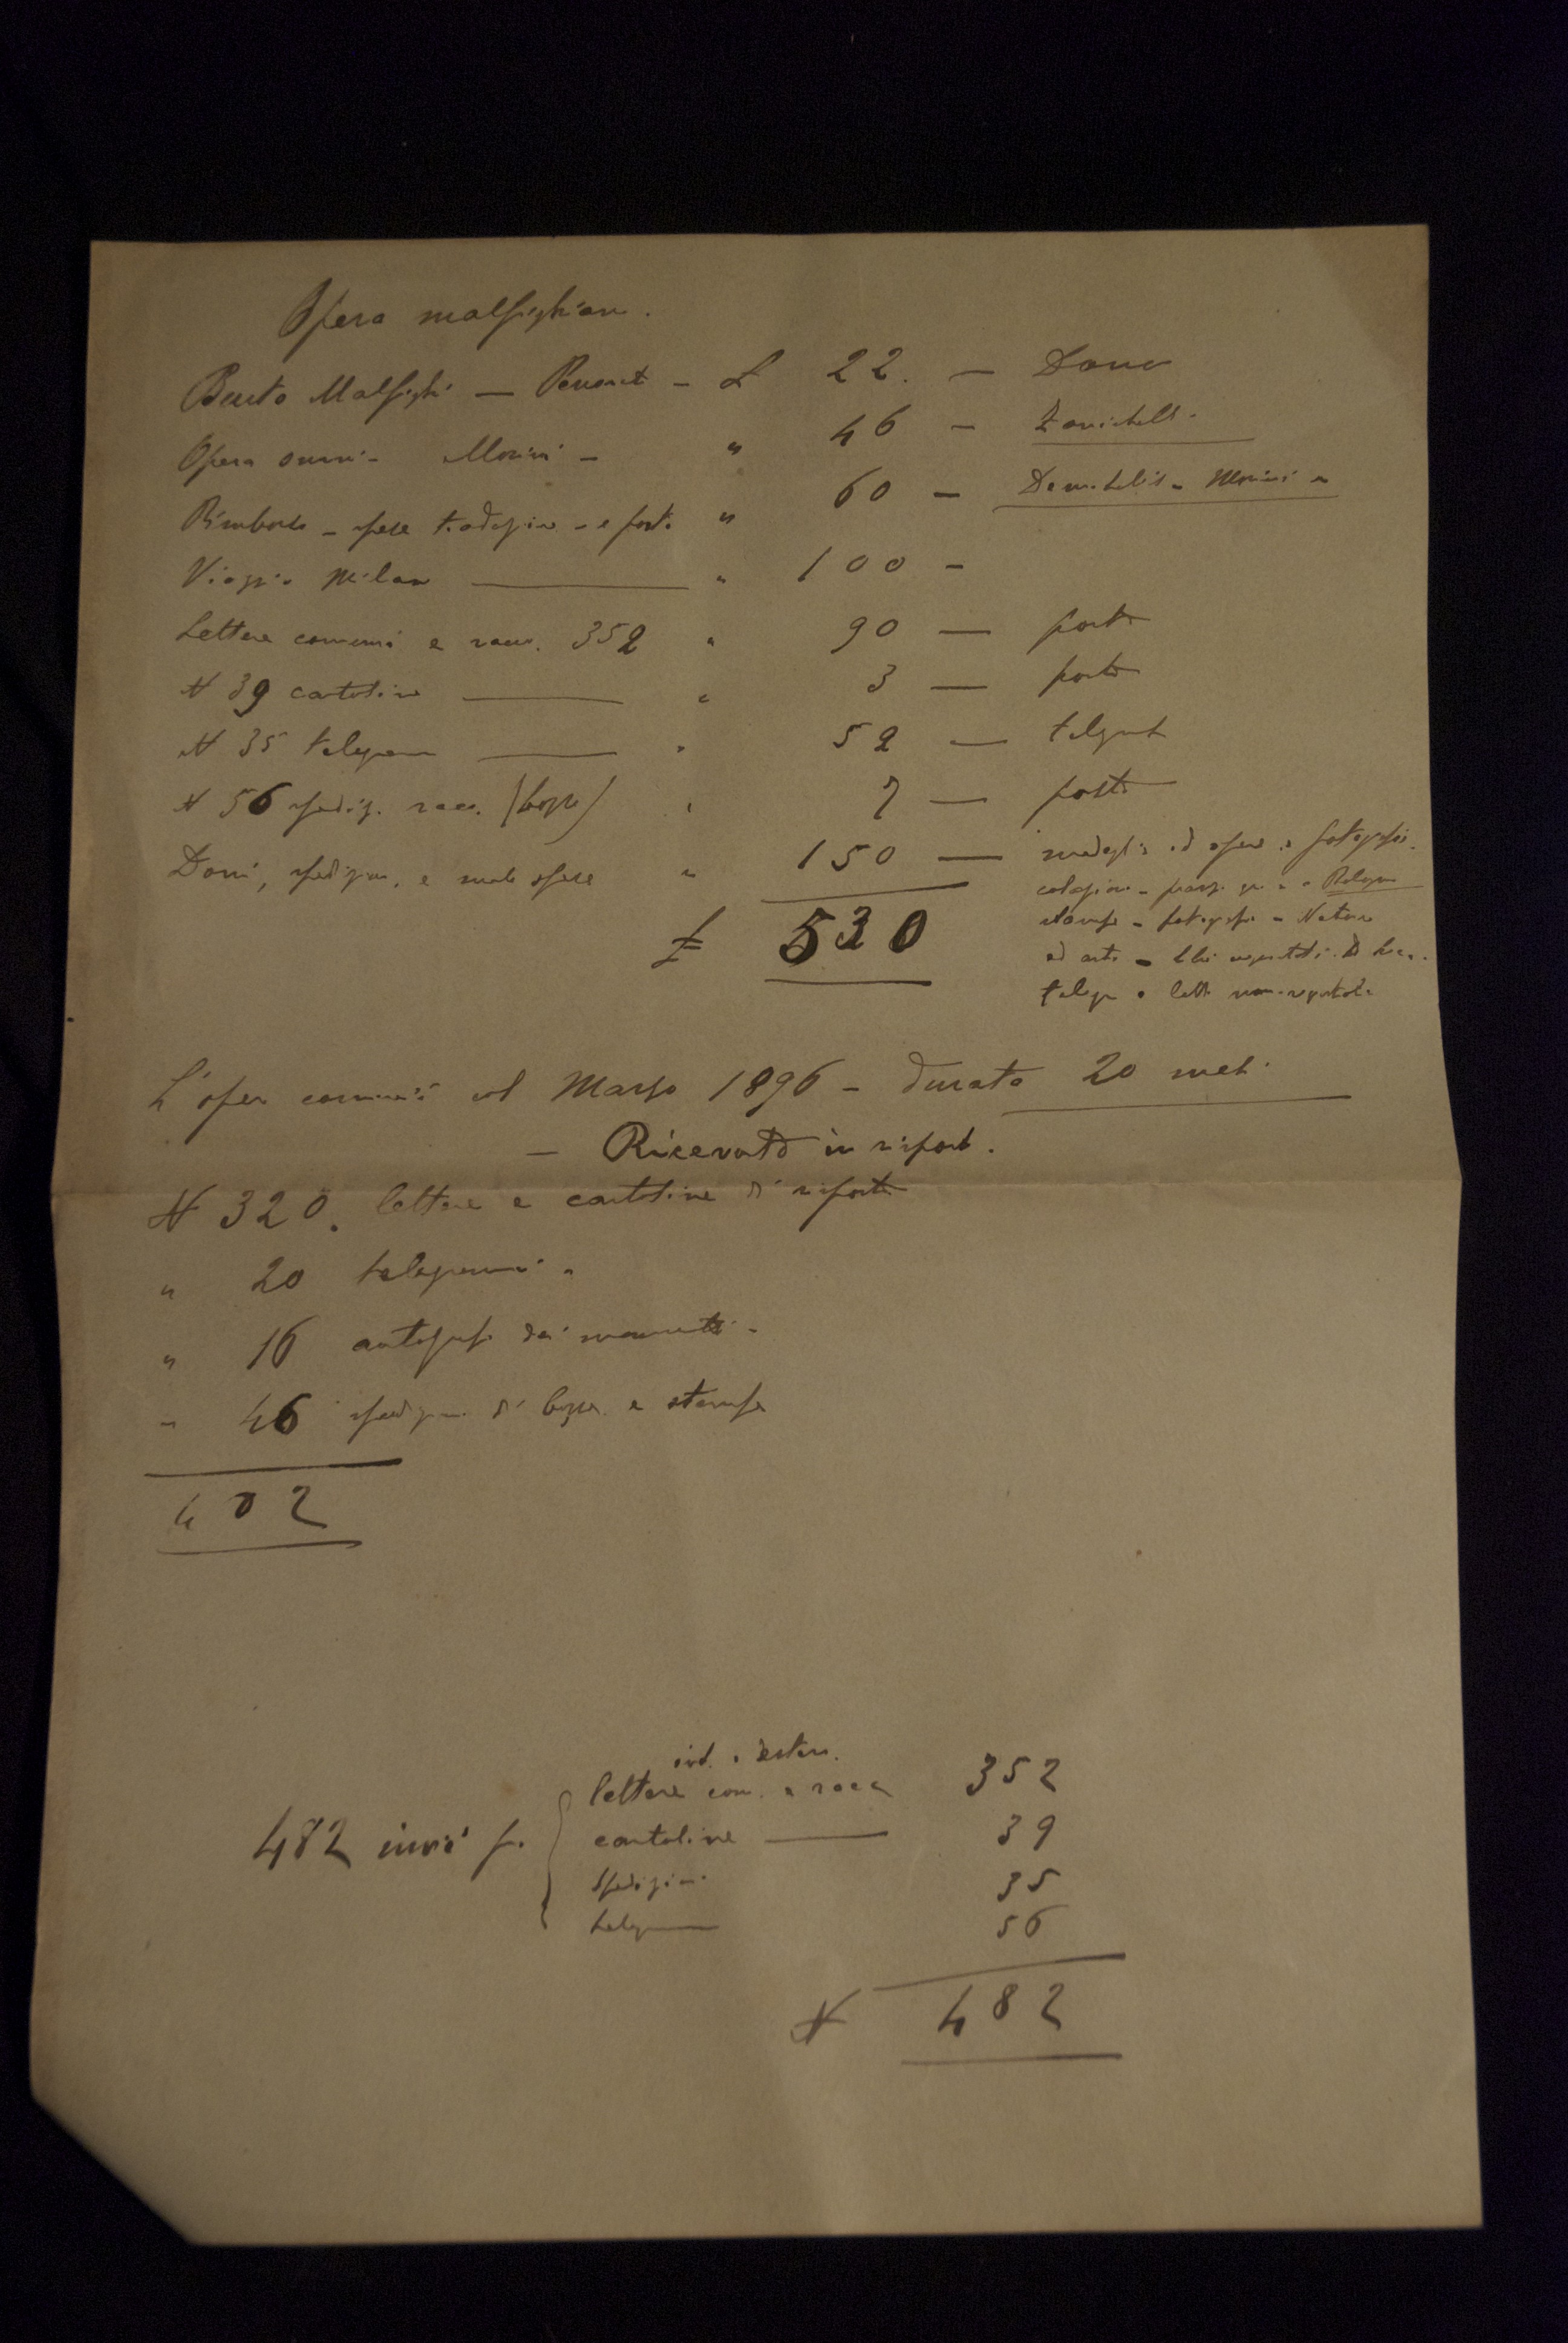 Opera malpighiana.
Busto Malpighi — L 22. — Dono
Opera omnia Morini — " 46 — Zanichelli.
Rimborso — spese — e posta " 60 — Morini
Viaggio Milano — " 100 —
Lettere comuni e racc. 352 " 90 — posta
N 39 cartoline — " 3 — posta
N 35 telegrammi — " 52 —
N 56 spediz. racc. (bozze) " 7 — posta
Doni, spedizioni, e spese " 150 — ed opere e fotografie.
Bologna
stampe — fotografie — Natura
ed arte —
£ 530
L'opera cominciò col Marzo 1896 — durata 20 mesi
— Ricevuto in risposta.
N 320. lettere e cartoline di risposta
" 20 telegrammi "
" 16 autografi dei
" 46 spedizioni di bozze e stampe
402
int. e estero.
482 invii p. { lettere com. e racc 352
cartoline — 39
spedizioni 35
telegrammi 56
N 482